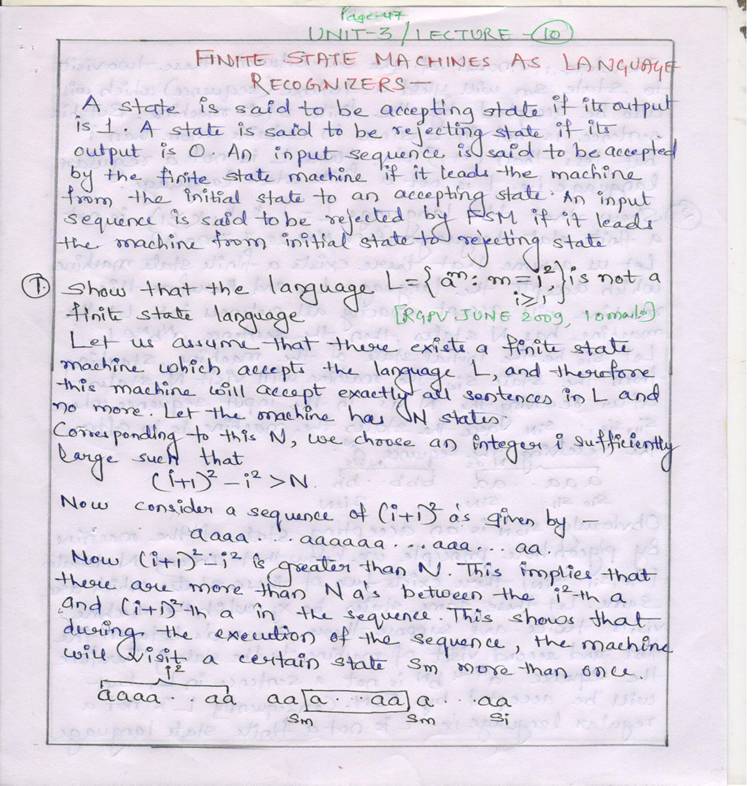 Page-47
UNIT-3/LECTURE-10
FINITE STATE MACHINES AS LANGUAGE
RECOGNIZERS—
A state is said to be accepting state if its output
is 1. A state is said to be rejecting state if its
output is 0. An input sequence is said to be accepted
by the finite state machine if it leads the machine
from the initial state to an accepting state. An input
sequence is said to be rejected by FSM if it leads
the machine from initial state to rejecting state
1. Show that the language L={aᵐ : m=i², i≥1} is not a
finite state language [RGPV JUNE 2009, 10marks]
Let us assume that there exists a finite state
machine which accepts the language L, and therefore
this machine will accept exactly all sentences in L and
no more. Let the machine has N states
Corresponding to this N, we choose an integer i sufficiently
large such that
(i+1)² - i² > N.
Now consider a sequence of (i+1)² a's given by
aaaa... aaaaaa... aaa... aa.
Now (i+1)² - i² is greater than N. This implies that
there are more than N a's between the i²-th a
and (i+1)²-th a in the sequence. This shows that
during the execution of the sequence, the machine
will visit a certain state Sm more than once.
i²
aaaa..aa aa a..aa a..aa
Sm Sm Si